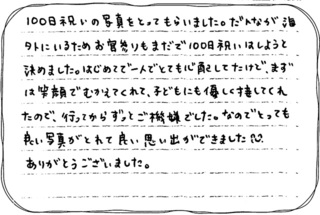 100日祝いの写真をとってもらいました。だんなが海
外にいるためお宮参りもまだで100日祝いはしようと
決めました。はじめてで一人でとても心配してたけど、まず
は笑顔でむかえてくれて、子どもにも優しく接してくれ
たので、行ってからずっとご機嫌でした。なのでとっても
良い写真がとれて良い思い出ができました♡
ありがとうございました。